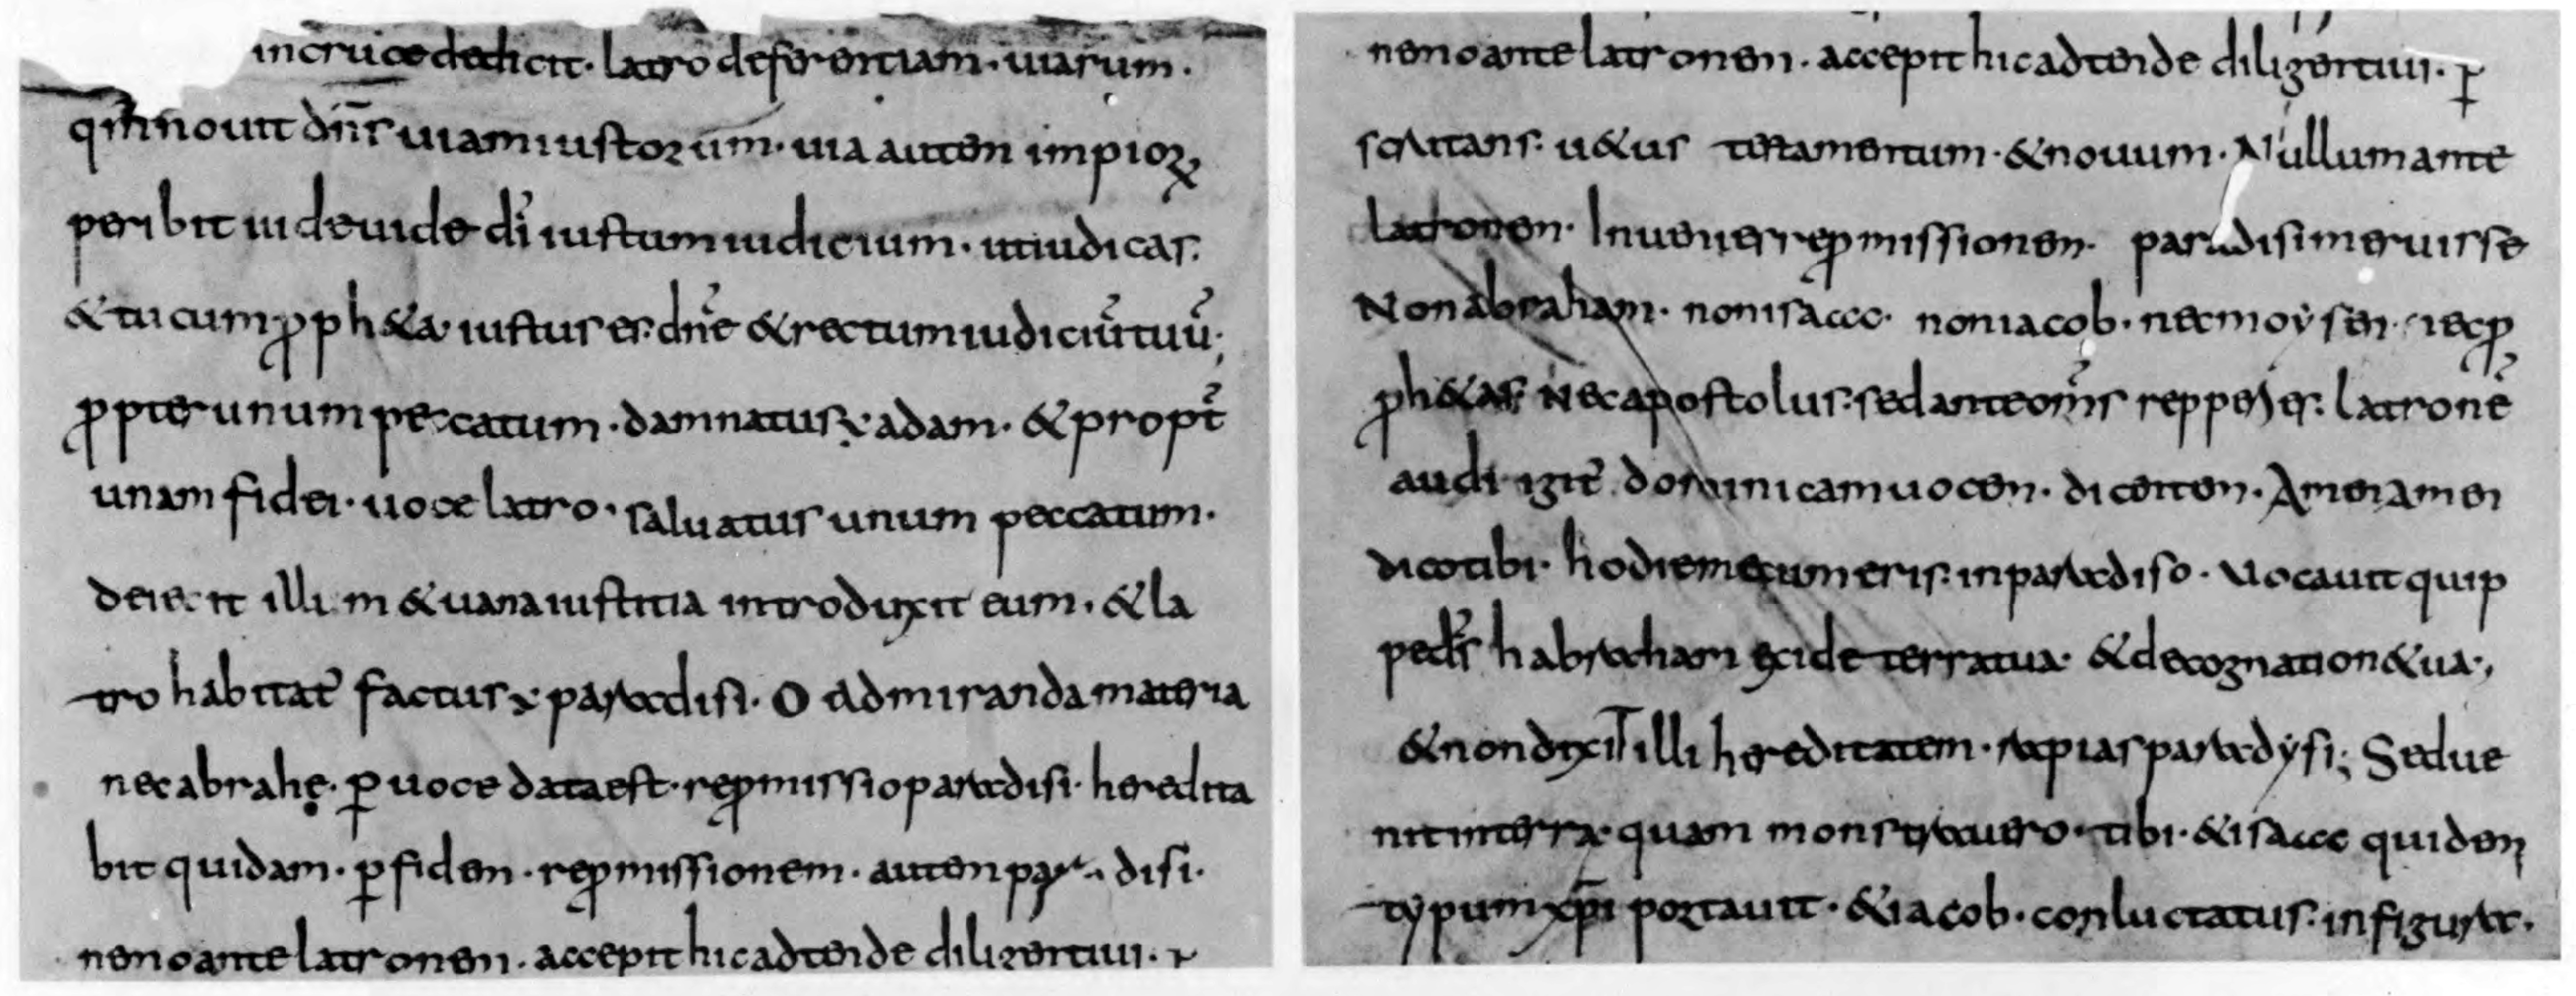 in cruce dedicit · latro deferentiam · uiarum ·
qm̄ nouit dn̄s uiam iustorum · uia autem impioꝝ
peribit uide uide di᾿ iustum iudicium · ut iudicas ·
& tu cum ꝓph&a iustus es · dn̄e & rectum iudiciū tuū ;
ꝓpter unum peccatum · damnatus : adam · & propt̄
unam fidei · uoce latro · saluatus unum peccatum ·
deiecit illum & uana iustitia introduxit eum · & la
tro habitat᾿ factus : paradisi · O admiranda materia
nec abrahę · ꝑ uoce data est · reꝓmissio paradisi · heredita
bit quidam · ꝑ fidem · reꝓmissionem · autem paradisi ·
nemo ante latronem · accepit hic adtende diligentiui · ꝑ
scrutans · u&us testamentum · & nouum · Nullum ante
latronem · Inueneris reꝓmissionem · paradisi meruisse
Non abraham · non isaac · non iacob · nec moẏsen · nec ꝓ
ꝓh&as · Nec apostolus · sed ante om̄s repperies · latronē
audi igit᾿ dominicam uocem · dicentem · Amen amen
dico tibi · hodie mecum eris · in paradiso · Uocauit quip
pe dī᾿s habraham exi de terra tua · & de cognation& ua ·,
& non dixiT illi hereditatem · rapias paradẏsi ; Sed ue
nit in terra · quam monstrauero · tibi · & isaac quidem
tẏpum xp̄i portauit · & iacob · conluctatus · in figura ·